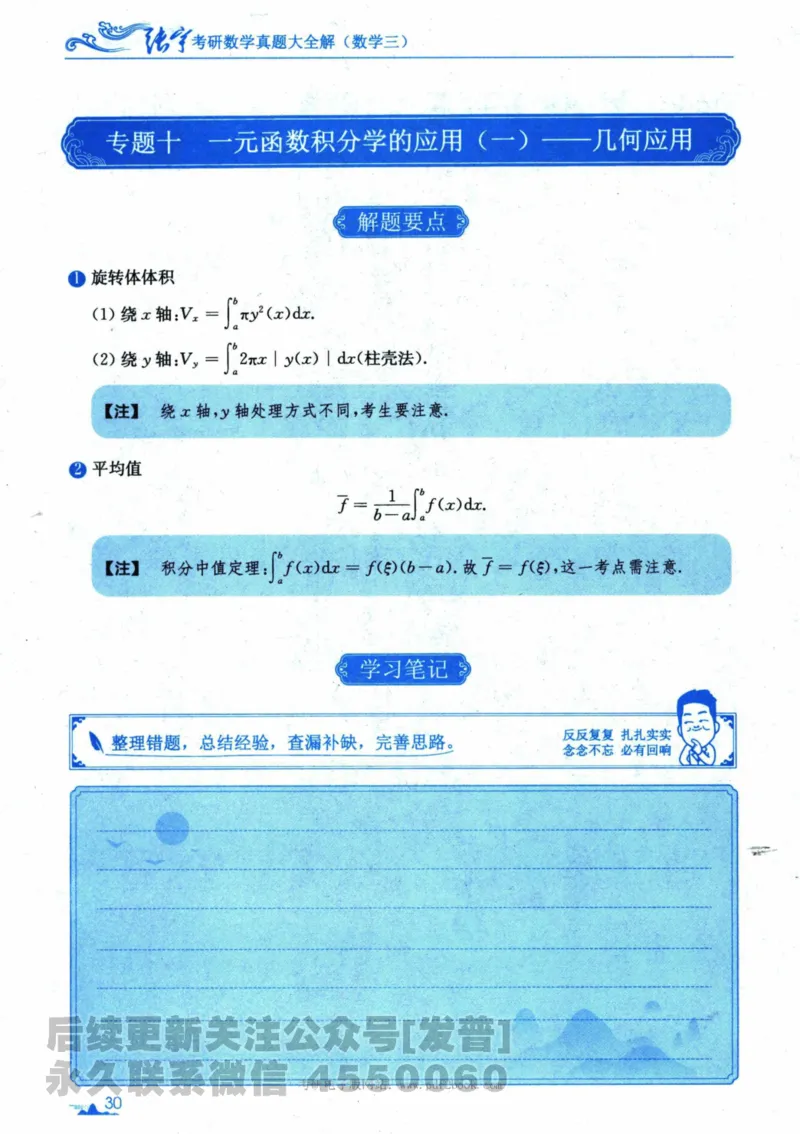 张宇考研数学真题大全解（数学三）
专题十　一元函数积分学的应用（一）——几何应用
解题要点
❶ 旋转体体积
(1) 绕 x 轴:Vₓ = ∫ₐᵇ πy²(x)dx.
(2) 绕 y 轴:V_y = ∫ₐᵇ 2πx | y(x) | dx(柱壳法).
【注】　绕 x 轴,y 轴处理方式不同,考生要注意.
❷ 平均值
f̄ = 1/(b−a) ∫ₐᵇ f(x)dx.
【注】　积分中值定理:∫ₐᵇ f(x)dx = f(ξ)(b−a). 故 f̄ = f(ξ),这一考点需注意.
学习笔记
整理错题，总结经验，查漏补缺，完善思路。
反反复复 扎扎实实
念念不忘 必有回响
后续更新关注公众号[发普]
永久联系微信 4550060
30